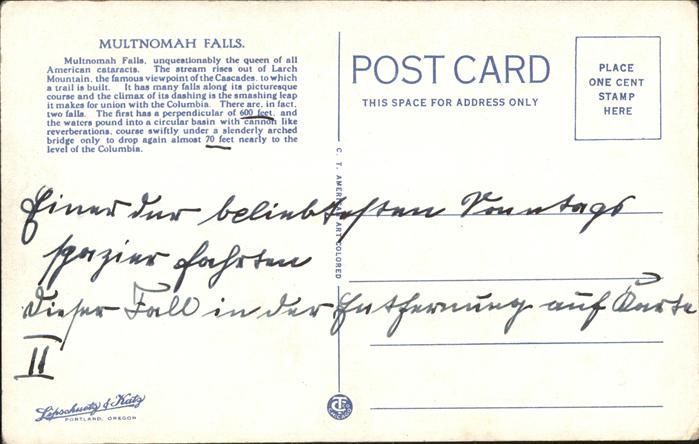 MULTNOMAH FALLS.
Multnomah Falls, unquestionably the queen of all
American cataracts. The stream rises out of Larch
Mountain, the famous viewpoint of the Cascades, to which
a trail is built. It has many falls along its picturesque
course and the climax of its dashing is the smashing leap
it makes for union with the Columbia. There are, in fact,
two falls. The first has a perpendicular of 600 feet, and
the waters pound into a circular basin with cannon like
reverberations, course swiftly under a slenderly arched
bridge only to drop again almost 70 feet nearly to the
level of the Columbia.
POST CARD
THIS SPACE FOR ADDRESS ONLY
PLACE
ONE CENT
STAMP
HERE
C. T. AMERICAN ART COLORED
Einer der beliebtesten Sonntags
spazier fahrten
Dieser Fall in der Entfernung auf Karte
II
Lipschuetz & Katz
PORTLAND, OREGON